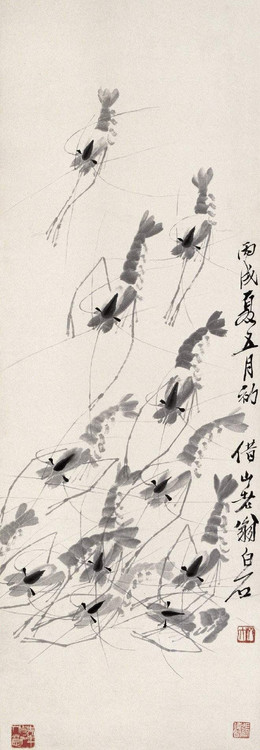 丙戌夏五月初借山老翁白石